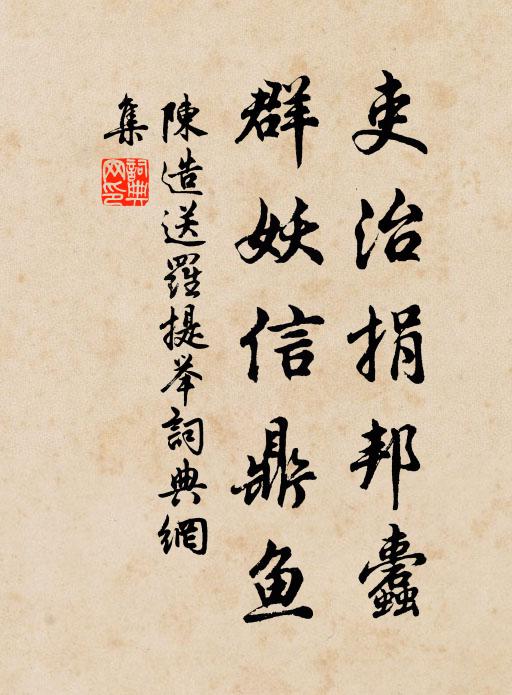 吏治捐邦蠹
群妖信鼎鱼
陳造送羅提举詞典網
集
詞典網印